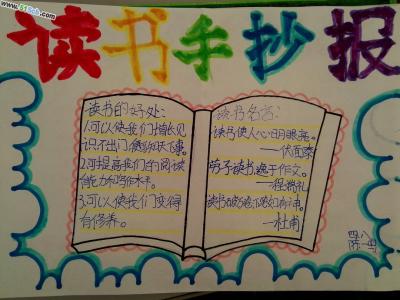 读书手抄报
读书的好处:
1.可以使我们增长见
识不出门便知天下事。
2.可提高我们的阅读
能力和写作水平。
3.可以使我们变得
有修养。
读书名言:
读书使人心明眼亮。
勤于读书,逸于作文。
—程端礼
读书破万卷,下笔如有神。
—杜甫